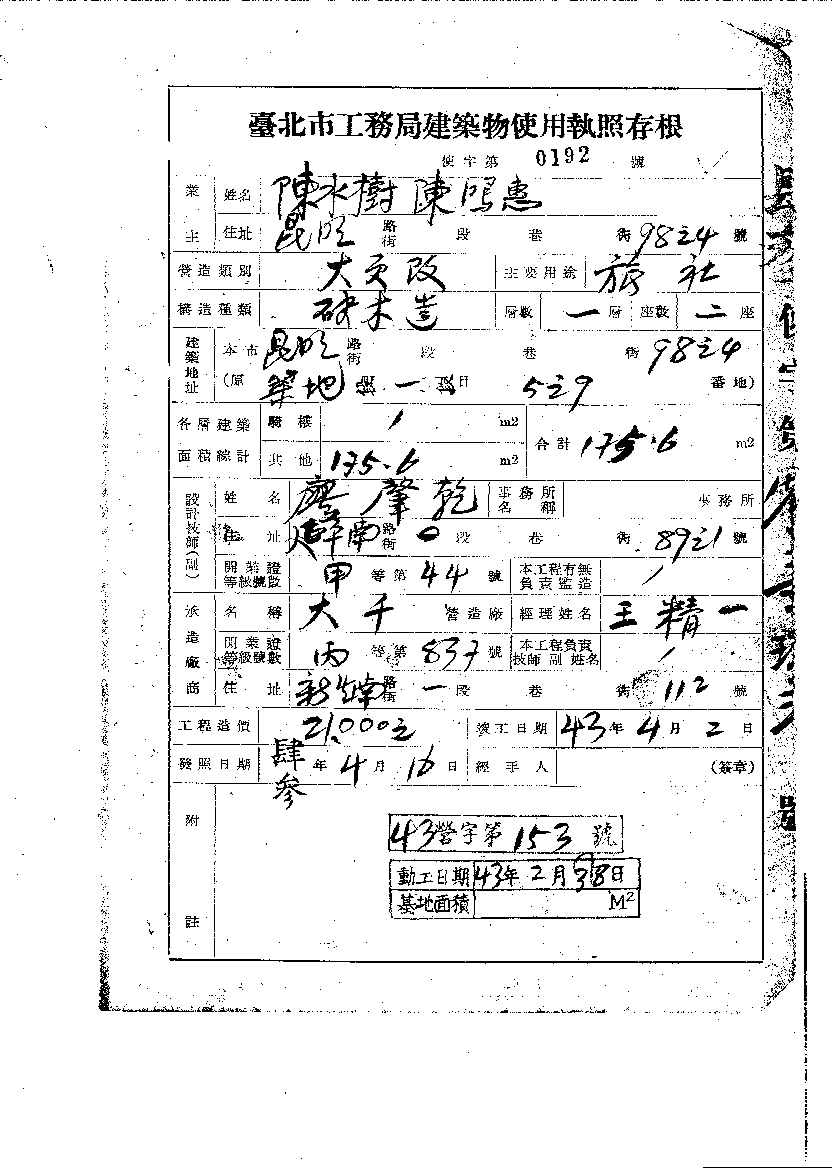 臺北市工務局建築物使用執照存根
使字第 0192 號
業主 姓名 陳水樹 陳鳴惠
住址 昆明 路街 段 巷 街 98之4 號
營造類別 大更改 主要用途 旅社
構造種類 磚木造 層數 一 層 座數 二 座
建築地址 本市 昆明 路街 段 巷 街 98之4
(原 築地 一 5之9 番地)
各層建築面積總計 騎樓 / m2 合計 175.6 m2
其他 175.6 m2
設計技師(副) 姓名 廖肇乾 事務所名稱 事務所
住址 南 路街 0 段 巷 街 89之1 號
開業證等級號數 甲 等第 44 號 本工程有無負責監造 /
承造廠商 名稱 大千 營造廠 經理姓名 王精一
開業證等級號數 丙 等第 837 號 本工程負責技師 副 姓名 /
住址 南 路街 一 段 巷 街 112 號
工程造價 21,000元 竣工日期 43年4月2日
發照日期 肆參 年 4 月 16 日 經手人 (簽章)
附註
43營字第153號
動工日期 43年2月 8日
基地面積 M²